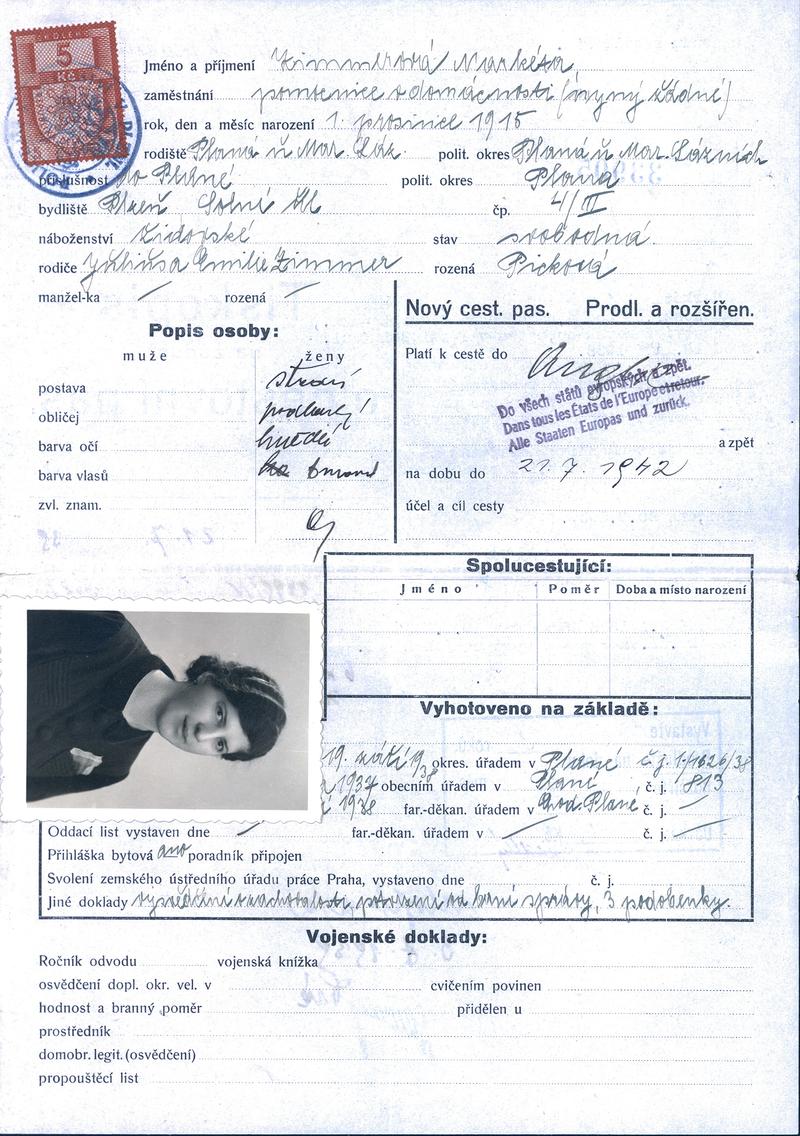 KOLEK
5
Kč
Jméno a příjmení Zimmerová Markéta
zaměstnání pomocnice v domácnosti (nyný žádné)
rok, den a měsíc narození 1. prosince 1915
rodiště Planá u Mar. Láz. polit. okres Planá u Mar. Lázních
příslušnost do Plané polit. okres Planá
bydliště Plzeň Solní Ul čp. 4/III
náboženství židovské stav svobodná
rodiče Julius a Emilie Zimmer rozená Picková
manžel-ka / rozená /
Nový cest. pas. Prodl. a rozšířen.
Popis osoby:
muže ženy
postava střední
obličej podlouhlý
barva očí hnědé
barva vlasů brunet
zvl. znam.
Platí k cestě do Anglie
Do všech států evropských a zpět.
Dans tous les États de l'Europe et retour.
Alle Staaten Europas und zurück.
a zpět
na dobu do 21. 7. 1942
účel a cíl cesty
Spolucestující:
Jméno Poměr Doba a místo narození
Vyhotoveno na základě:
19. září 1938 okres. úřadem v Plané č. j. 1-1626/38
1937 obecním úřadem v Plané č. j. 813
1938 far.-děkan. úřadem v Plané č. j. /
Oddací list vystaven dne / far.-děkan. úřadem v / č. j. /
Přihláška bytová ano poradník připojen
Svolení zemského ústředního úřadu práce Praha, vystaveno dne č. j.
Jiné doklady vysvědčení zachovalosti, potvrzení od berní správy, 3 podobenky.
Vojenské doklady:
Ročník odvodu vojenská knížka
osvědčení dopl. okr. vel. v cvičením povinen
hodnost a branný poměr přidělen u
prostředník
domobr. legit. (osvědčení)
propouštěcí list